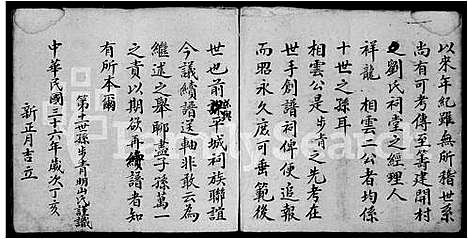 以來年紀雖無所稽世系
尚有可考傳至等建開村
之劉氏祠堂之經理人
祥龍相雲二公者均係
十世之孫耳
相雲公是步青之先考在
世手創譜祠俾便追報
而昭永久庶可垂範後
世也前平城祠族聯誼
今議續譜送軸非敢云為
繼述之舉聊盡子孫萬一
之責以期欲再續譜者知
有所本爾
第十一世孫步青明山氏謹識
中華民國三十六年歲次丁亥
新正月吉立